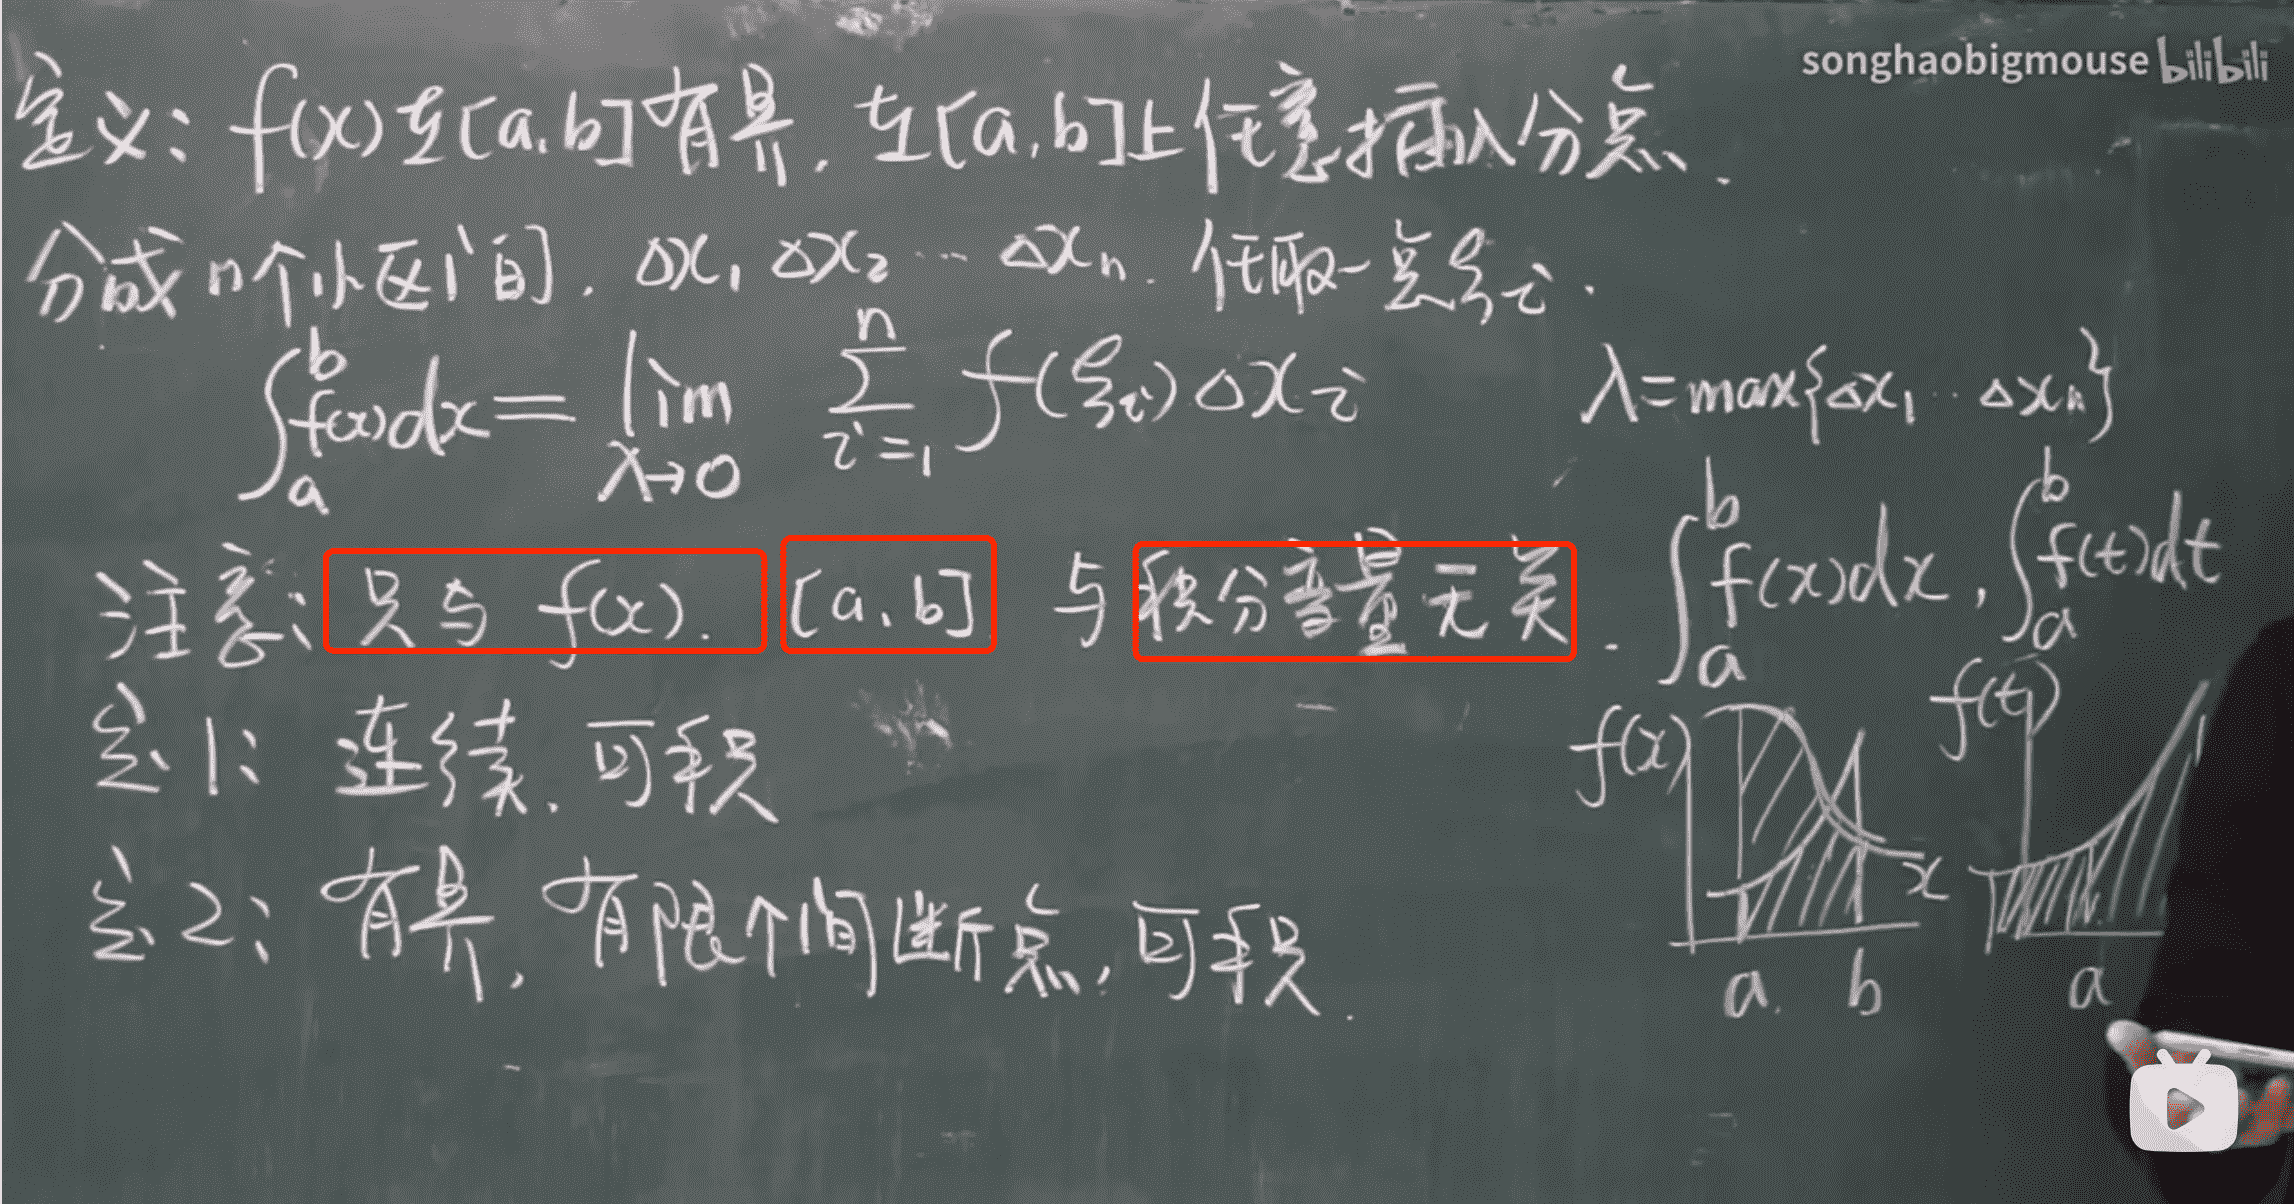 songhaobigmouse bilibili
定义: f(x)在[a,b]有界. 在[a,b]上任意插入分点.
分成n个小区间. Δx₁ Δx₂ … Δxₙ. 任取一点ξᵢ.
∫ₐᵇ f(x)dx = lim_{λ→0} ∑_{i=1}^{n} f(ξᵢ)Δxᵢ λ=max{Δx₁ ‥ Δxₙ}
注意: 只与 f(x). [a,b] 与积分变量无关. ∫ₐᵇ f(x)dx, ∫ₐᵇ f(t)dt
定1: 连续、可积
定2: 有界, 有限个间断点, 可积.
f(x) f(t)
x
a. b a